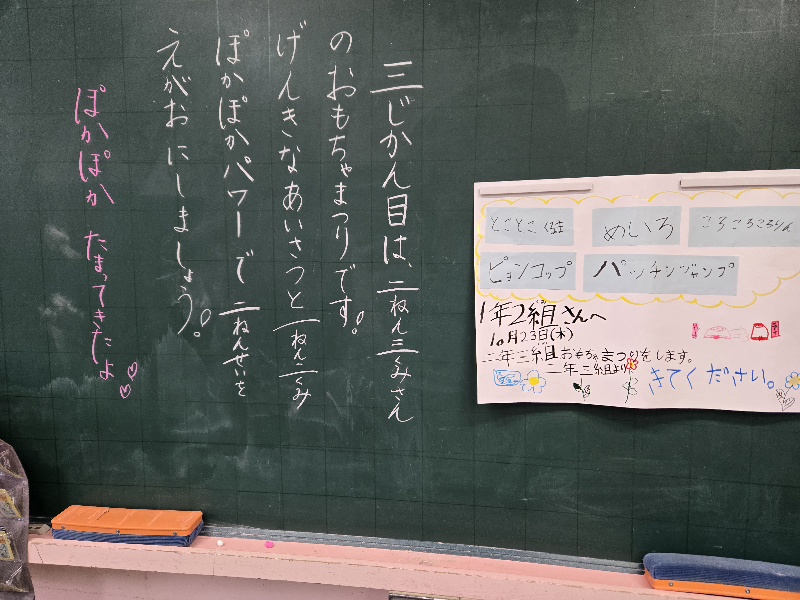 三じかん目は、二ねん三くみさん
のおもちゃまつりです。
げんきなあいさつと一ねん二くみ
ぽかぽかパワーで二ねんせいを
えがおにしましょう。
ぽかぽか たまってきたよ♡♡
とことこ くるま
めいろ
ころころころりん
ピョンコップ
パッチンジャンプ
1年2組さんへ
10月23日(木)
二年三組おもちゃまつりをします。
二年三組より
きてください。